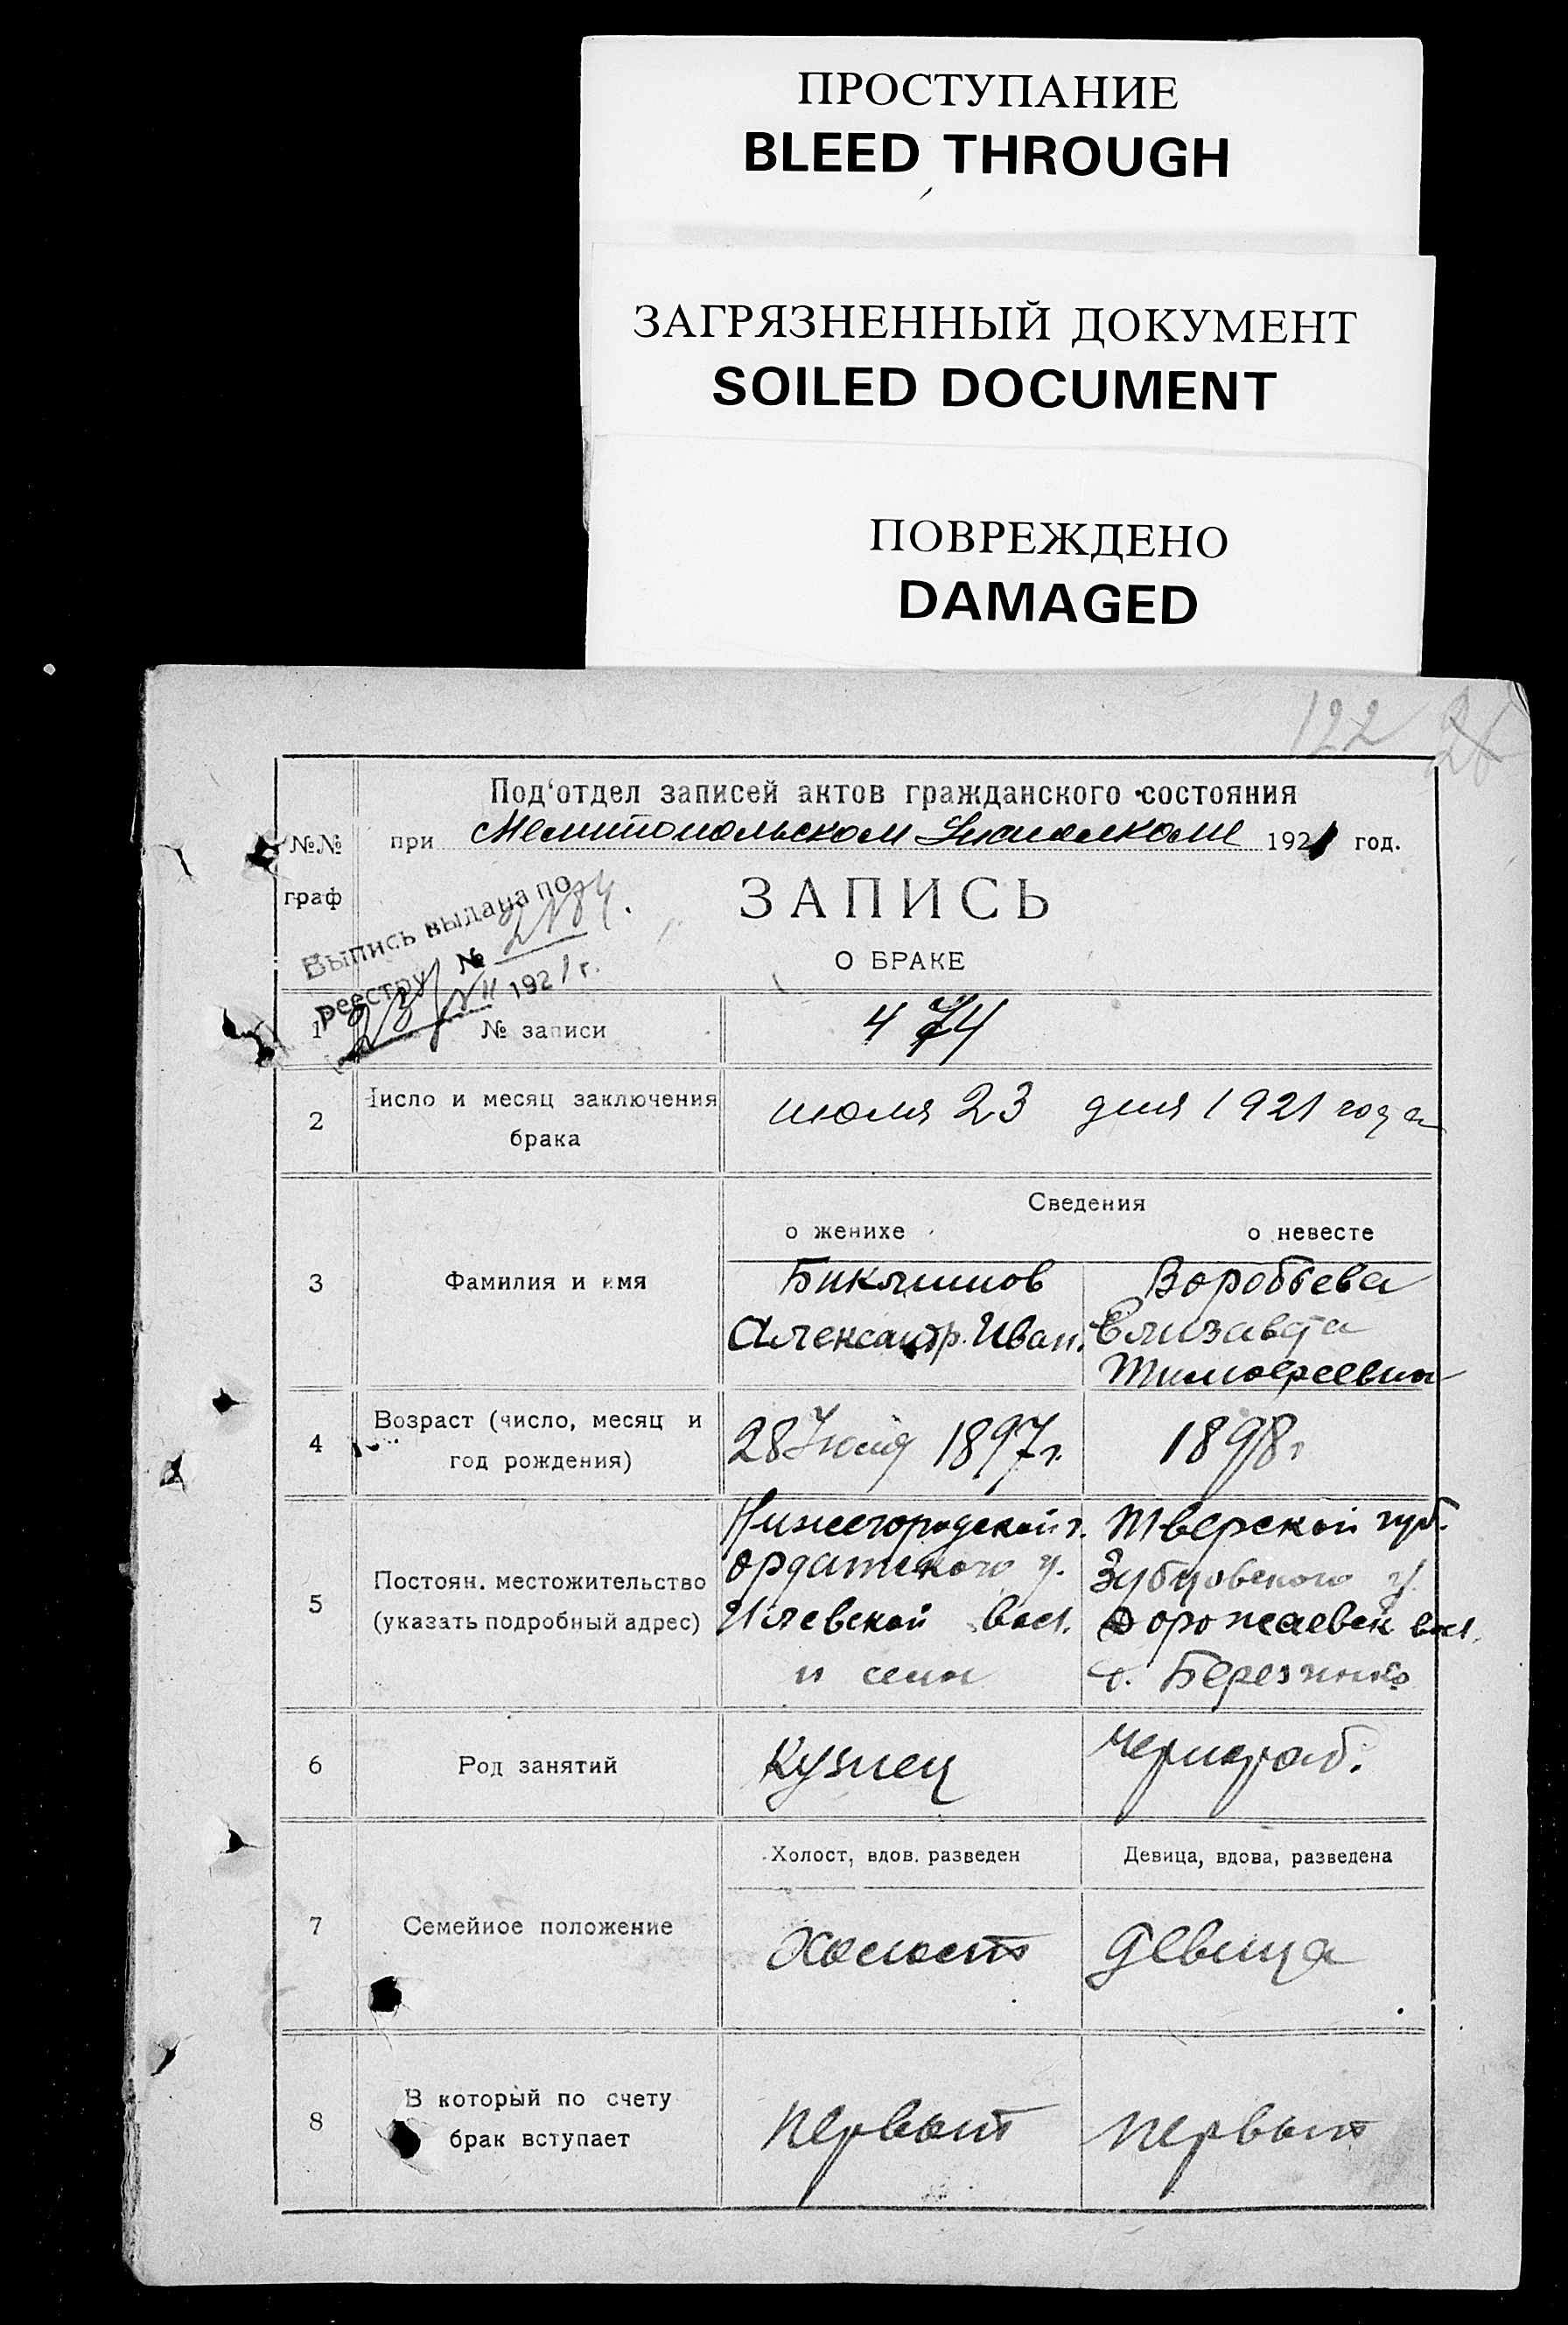 ПРОСТУПАНИЕ
BLEED THROUGH
ЗАГРЯЗНЕННЫЙ ДОКУМЕНТ
SOILED DOCUMENT
ПОВРЕЖДЕНО
DAMAGED
122 28
Под'отдел записей актов гражданского состояния
№№ граф
при Мелитопольском Исполкоме 1921 год.
Выпись выдана по
реестру № 2184.
23/VII 1921 г.
ЗАПИСЬ
О БРАКЕ
1 № записи 474
2 Число и месяц заключения брака июля 23 дня 1921 года
Сведения
о женихе о невесте
3 Фамилия и имя
Бикляшов Воробьева
Александр. Иван. Елизавета
Тимофеевна
4 Возраст (число, месяц и год рождения) 28 1897 г. 1898 г
5 Постоян. местожительство
(указать подробный адрес)
Нижегородской г. Тверской губ.
ордатского у. Зубцовского у.
Илевской вол. Дорожаевск вол.
и села д. Березинко
6 Род занятий Кузнец чернораб.
Холост, вдов. разведен Девица, вдова, разведена
7 Семейное положение Холостъ девица
8 В который по счету
брак вступает
первый первый